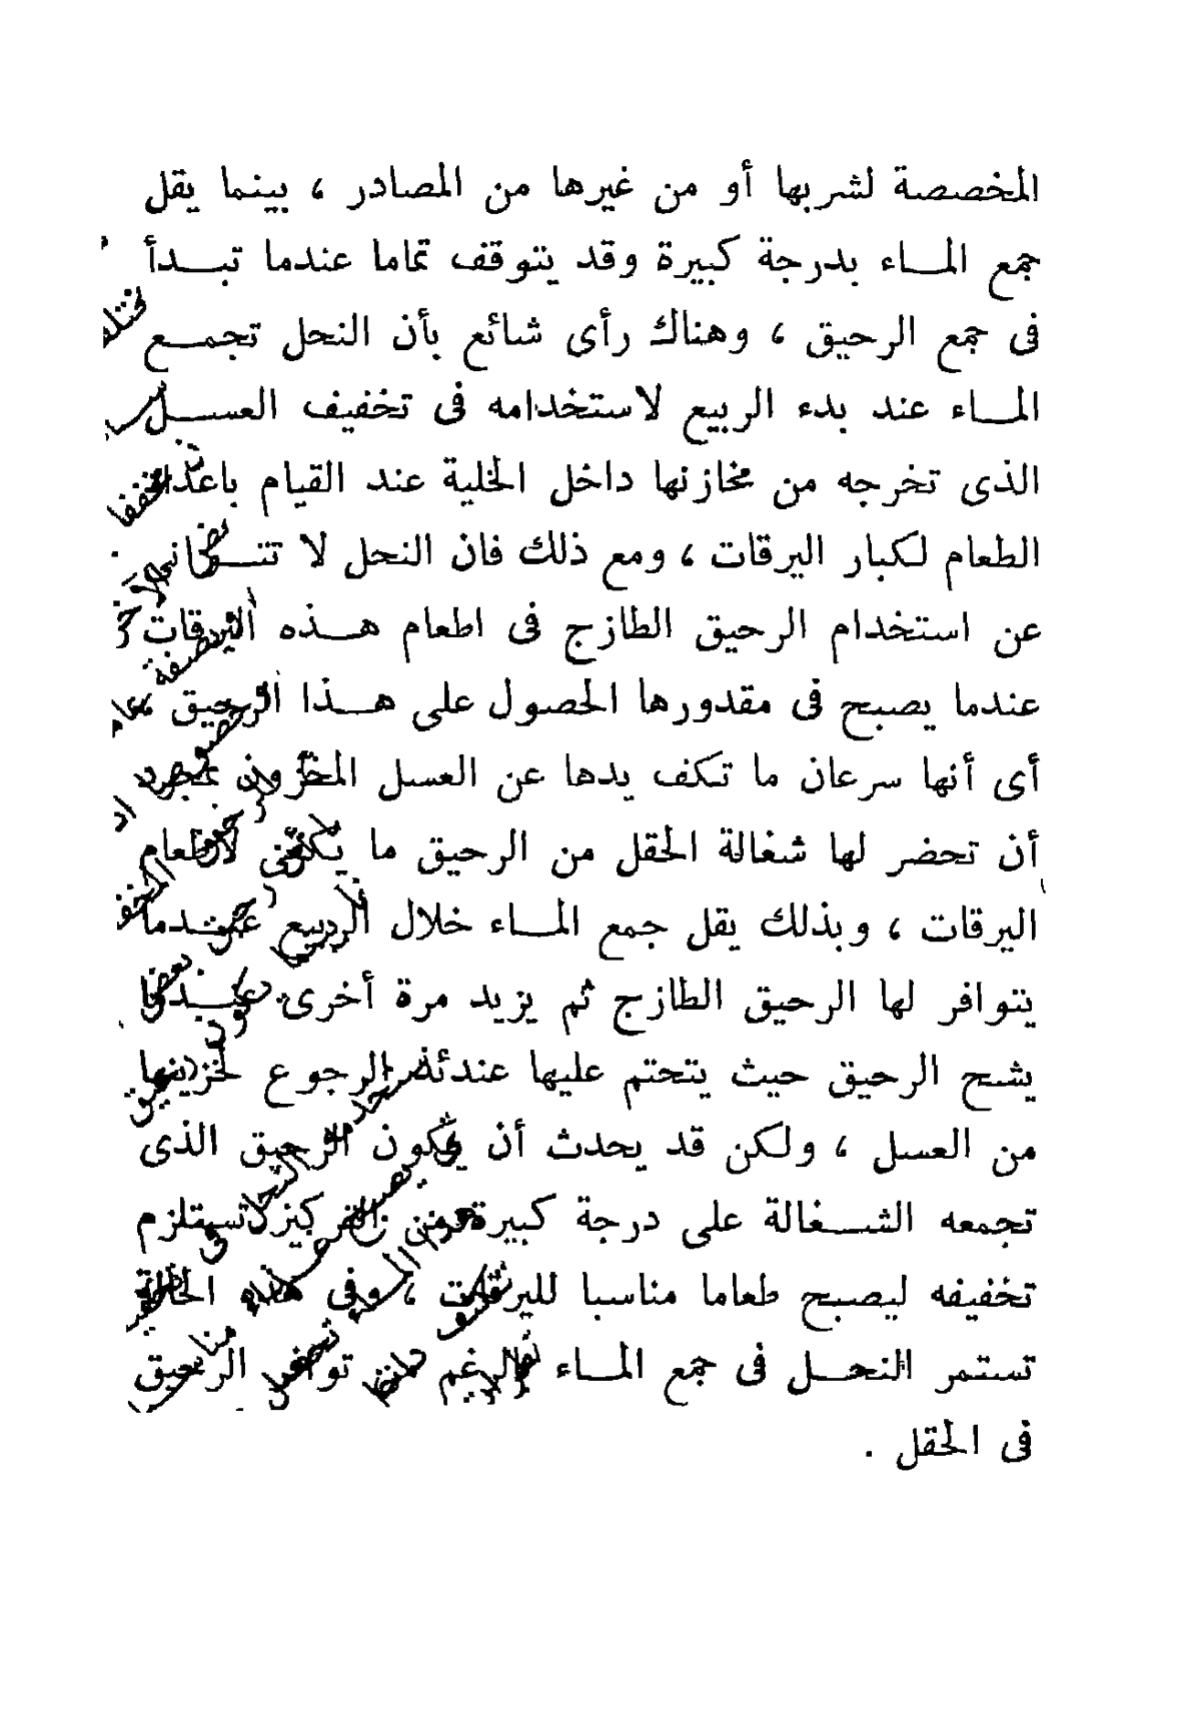 المخصصة لشربها أو من غيرها من المصادر ، بينما يقل
جمع المـاء بدرجة كبيرة وقد يتوقف تماما عندما تبـدأ
فى جمع الرحيق ، وهناك رأى شائع بأن النحل تجمـع
المـاء عند بدء الربيع لاستخدامه فى تخفيف العسـل
الذى تخرجه من مخازنها داخل الخلية عند القيام باعداد
الطعام لكبار اليرقات ، ومع ذلك فان النحل لا تتـوانى
عن استخدام الرحيق الطازج فى اطعام هـذه اليرقات
عندما يصبح فى مقدورها الحصول على هـذا الرحيق ،
أى أنها سرعان ما تكف يدها عن العسل المخزون بمجرد
أن تحضر لها شغالة الحقل من الرحيق ما يكفى لاطعام
اليرقات ، وبذلك يقل جمع المـاء خلال الربيع عنـدما
يتوافر لها الرحيق الطازج ثم يزيد مرة أخرى عنـدما
يشح الرحيق حيث يتحتم عليها عندئذ الرجوع لخزينها
من العسل ، ولكن قد يحدث أن يكون الرحيق الذى
تجمعه الشـغالة على درجة كبيرة من التركيز تستلزم
تخفيفه ليصبح طعاما مناسبا لليرقات ، وفى هذه الحالة
تستمر النحـل فى جمع المـاء بالرغم من توافر الرحيق
فى الحقل .